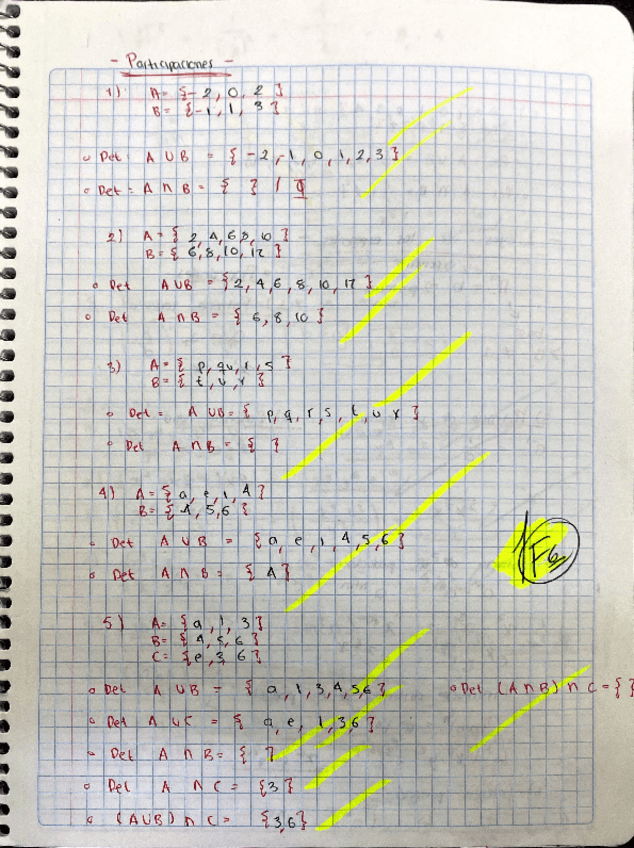 - Participaciones -
1) A= {-2, 0, 2}
B= {-1, 1, 3}
o Det: A ∪ B = {-2, -1, 0, 1, 2, 3}
o Det= A ∩ B= { } / Φ
2) A= {2, 4, 6, 8, 10}
B= {6, 8, 10, 12}
o Det A ∪ B = {2, 4, 6, 8, 10, 12}
o Det A ∩ B = {6, 8, 10}
3) A= {p, q, r, s}
B= {t, u, v}
o Det= A ∪ B= {p, q, r, s, t, u v}
o Det A ∩ B = { }
4) A= {a, e, 1, 4}
B= {4, 5, 6}
o Det A ∪ B = {a, e, 1, 4, 5, 6}
o Det A ∩ B= {4}
F6
5) A= {a, 1, 3}
B= {4, 5, 6}
C= {e, 3, 6}
o Det A ∪ B = {a, 1, 3, 4, 5, 6}
o Det (A ∩ B) ∩ C = { }
o Det A ∪ C = {a, e, 1, 3, 6}
o Det A ∩ B = { }
o Det A ∩ C = {3}
o (A ∪ B) ∩ C = {3, 6}